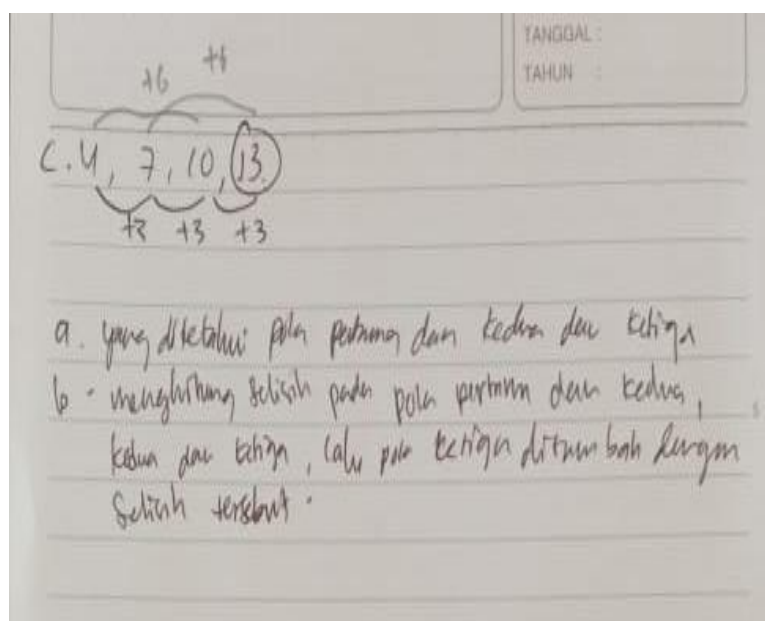 TANGGAL :
TAHUN :
+6 +6
C. 4, 7, 10, 13
+3 +3 +3
a. yang diketahui pola pertama dan kedua dan ketiga
b. menghitung selisih pada pola pertama dan kedua,
kedua dan ketiga, lalu pola ketiga ditambah dengan
selisih tersebut.